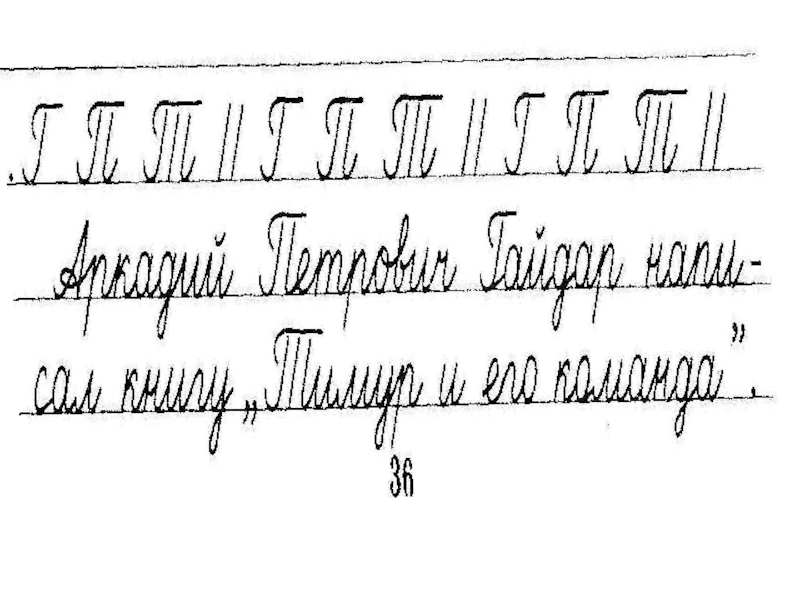 .Г П Т || Г П Т || Г П Т ||
Аркадий Петрович Гайдар напи-
сал книгу „Тимур и его команда”.
36